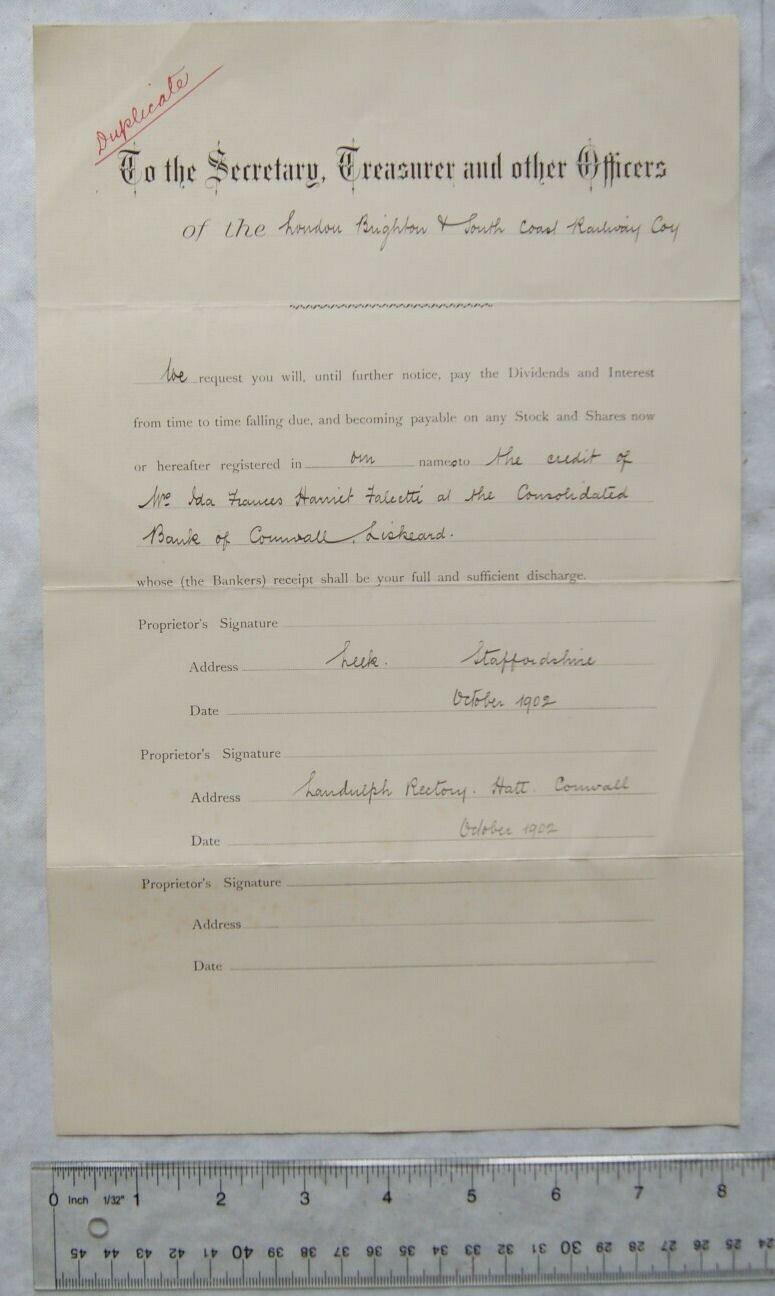 Duplicate
To the Secretary, Treasurer and other Officers
of the London Brighton & South Coast Railway Coy
We request you will, until further notice, pay the Dividends and Interest
from time to time falling due, and becoming payable on any Stock and Shares now
or hereafter registered in our names to the credit of
Mrs Ida Frances Harriet Falcetti at the Consolidated
Bank of Cornwall, Liskeard.
whose (the Bankers) receipt shall be your full and sufficient discharge.
Proprietor's Signature
Address Leek. Staffordshire
Date October 1902
Proprietor's Signature
Address Landulph Rectory. Hatt. Cornwall
Date October 1902
Proprietor's Signature
Address
Date
0 Inch 1/32" 1 2 3 4 5 6 7 8
45 44 43 42 41 40 39 38 37 36 35 34 33 32 31 30 29 28 27 26 25 24